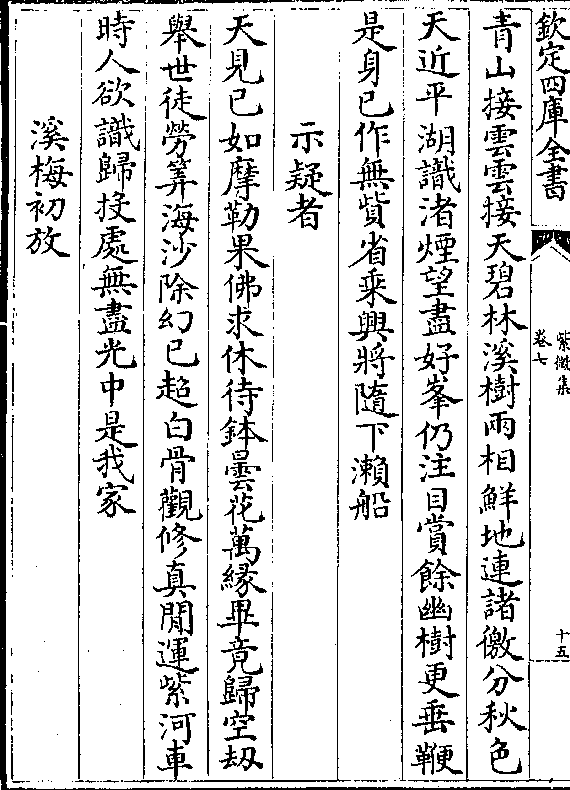 欽定四庫全書
紫微集
卷七
十五
青山接雲雲接天碧林溪樹兩相鮮地連諸徼分秋色
天近平湖識渚煙望盡好峯仍注目賞餘幽樹更垂鞭
是身已作無貲省乘興將隨下瀨船
示疑者
天見已如摩勒果佛求休待鉢曇花萬緣畢竟歸空劫
舉世徒勞筭海沙除幻已超白骨觀修真閒運紫河車
時人欲識歸投處無盡光中是我家
溪梅初放